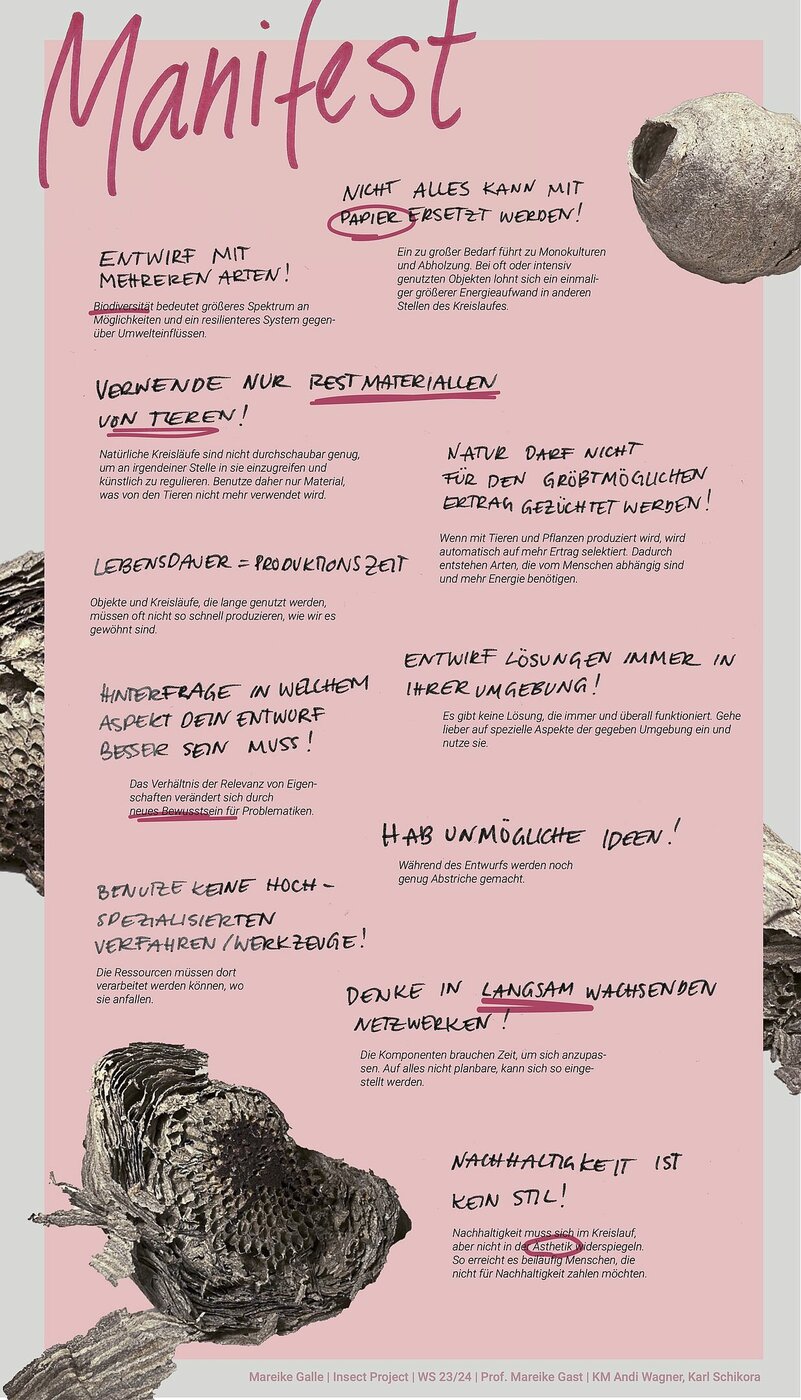 Manifest
NICHT ALLES KANN MIT
PAPIER ERSETZT WERDEN!
Ein zu großer Bedarf führt zu Monokulturen
und Abholzung. Bei oft oder intensiv
genutzten Objekten lohnt sich ein einmali-
ger größerer Energieaufwand in anderen
Stellen des Kreislaufes.
ENTWIRF MIT
MEHREREN ARTEN!
Biodiversität bedeutet größeres Spektrum an
Möglichkeiten und ein resilienteres System gegen-
über Umwelteinflüssen.
VERWENDE NUR RESTMATERIALLEN
VON TIEREN!
Natürliche Kreisläufe sind nicht durchschaubar genug,
um an irgendeiner Stelle in sie einzugreifen und
künstlich zu regulieren. Benutze daher nur Material,
was von den Tieren nicht mehr verwendet wird.
NATUR DARF NICHT
FÜR DEN GRÖßTMÖGLICHEN
ERTRAG GEZÜCHTET WERDEN!
Wenn mit Tieren und Pflanzen produziert wird, wird
automatisch auf mehr Ertrag selektiert. Dadurch
entstehen Arten, die vom Menschen abhängig sind
und mehr Energie benötigen.
LEBENSDAUER = PRODUKTIONSZEIT
Objekte und Kreisläufe, die lange genutzt werden,
müssen oft nicht so schnell produzieren, wie wir es
gewöhnt sind.
ENTWIRF LÖSUNGEN IMMER IN
IHRER UMGEBUNG!
Es gibt keine Lösung, die immer und überall funktioniert. Gehe
lieber auf spezielle Aspekte der gegeben Umgebung ein und
nutze sie.
HINTERFRAGE IN WELCHEM
ASPEKT DEIN ENTWURF
BESSER SEIN MUSS!
Das Verhältnis der Relevanz von Eigen-
schaften verändert sich durch
neues Bewusstsein für Problematiken.
HAB UNMÖGLICHE IDEEN!
Während des Entwurfs werden noch
genug Abstriche gemacht.
BENUTZE KEINE HOCH-
SPEZIALISIERTEN
VERFAHREN/WERKZEUGE!
Die Ressourcen müssen dort
verarbeitet werden können, wo
sie anfallen.
DENKE IN LANGSAM WACHSENDEN
NETZWERKEN!
Die Komponenten brauchen Zeit, um sich anzupas-
sen. Auf alles nicht planbare, kann sich so einge-
stellt werden.
NACHHALTIGKEIT IST
KEIN STIL!
Nachhaltigkeit muss sich im Kreislauf,
aber nicht in der Ästhetik widerspiegeln.
So erreicht es beiläufig Menschen, die
nicht für Nachhaltigkeit zahlen möchten.
Mareike Galle | Insect Project | WS 23/24 | Prof. Mareike Gast | KM Andi Wagner, Karl Schikora